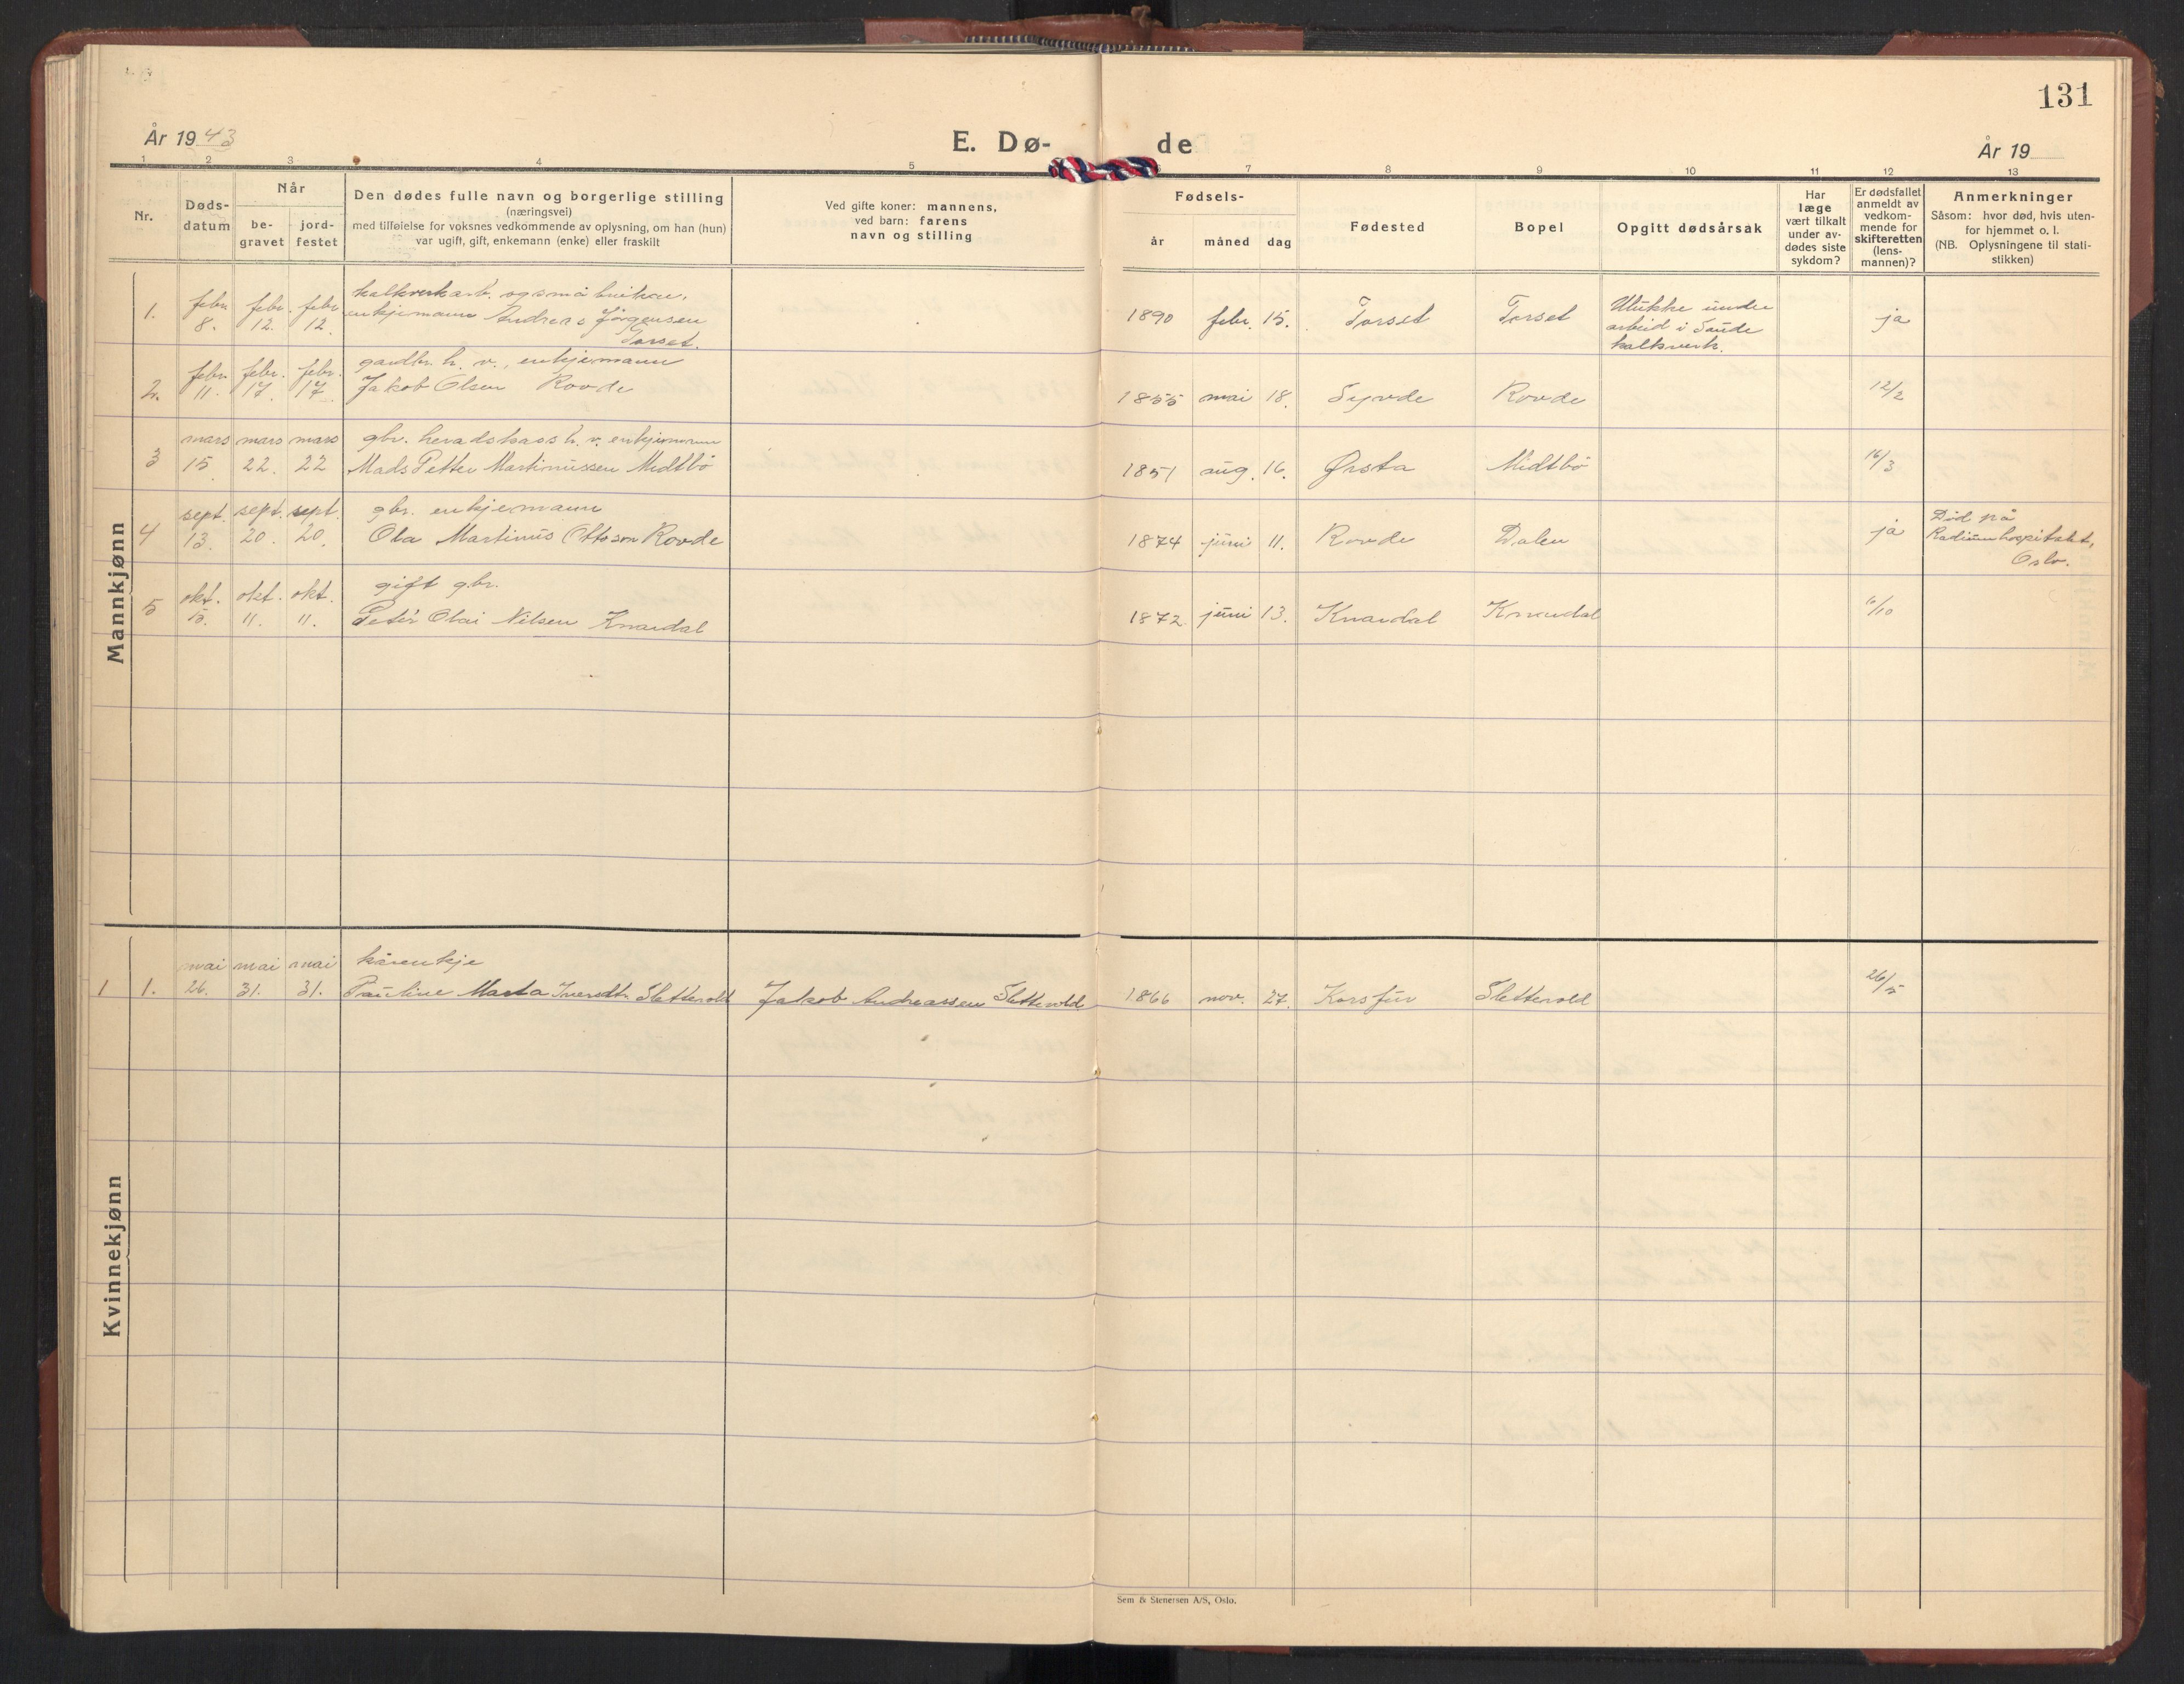 131
År 1943
E. Dø-
de
År 19
1 2 3 4 5 6 7 8 9 10 11 12 13
Nr.
Døds-
datum
Når
be-
gravet
jord-
festet
Den dødes fulle navn og borgerlige stilling
(næringsvei)
med tilføielse for voksnes vedkommende av oplysning, om han (hun)
var ugift, gift, enkemann (enke) eller fraskilt
Ved gifte koner: mannens,
ved barn: farens
navn og stilling
Fødsels-
år måned dag
Fødested
Bopel
Opgitt dødsårsak
Har
læge
vært tilkalt
under av-
dødes siste
sykdom?
Er dødsfallet
anmeldt av
vedkom-
mende for
skifteretten
(lens-
mannen)?
Anmerkninger
Såsom: hvor død, hvis uten-
for hjemmet o. l.
(NB. Oplysningene til stati-
stikken)
Mannkjønn
kalkverkarb. og småbrukar,
1. febr. 8. febr. 12. febr. 12. enkjemann Andreas Jörgensen
Torset.
1890 febr. 15. Torset Torset
Ulukke under
arbeid i Saude
kalkverk.
ja
gardbr. h. v., enkjemann
2. febr. 11. febr. 17. febr. 17. Jakob Olsen Rovde
1855 mai 18. Syvde Rovde 12/2
gbr. heradskass h. v. enkjemann
3 mars 15. mars 22. mars 22 Mads Petter Martinussen Midtbö
1851 aug. 16. Ørsta Midtbö 16/3
gbr. enkjemann
4 sept. 13. sept. 20. sept. 20. Ola Martinus Ottosen Rovde
1874 juni 11. Rovde Dalen ja
Död på
Radiumhospitalet,
Oslo.
gift gbr.
5 okt. 5. okt. 11. okt. 11. Peter Olai Nilsen Knardal
1872 juni 13. Knardal Knardal /10
Kvinnekjønn
kårenkje
1 1. mai 26. mai 31. mai 31. Pauline Marta Iversdtr. Sletterold Jakob Andreassen Sletterold
1866 nov. 27. Korsfur Sletterold 26/5
Sem & Stenersen A/S, Oslo.